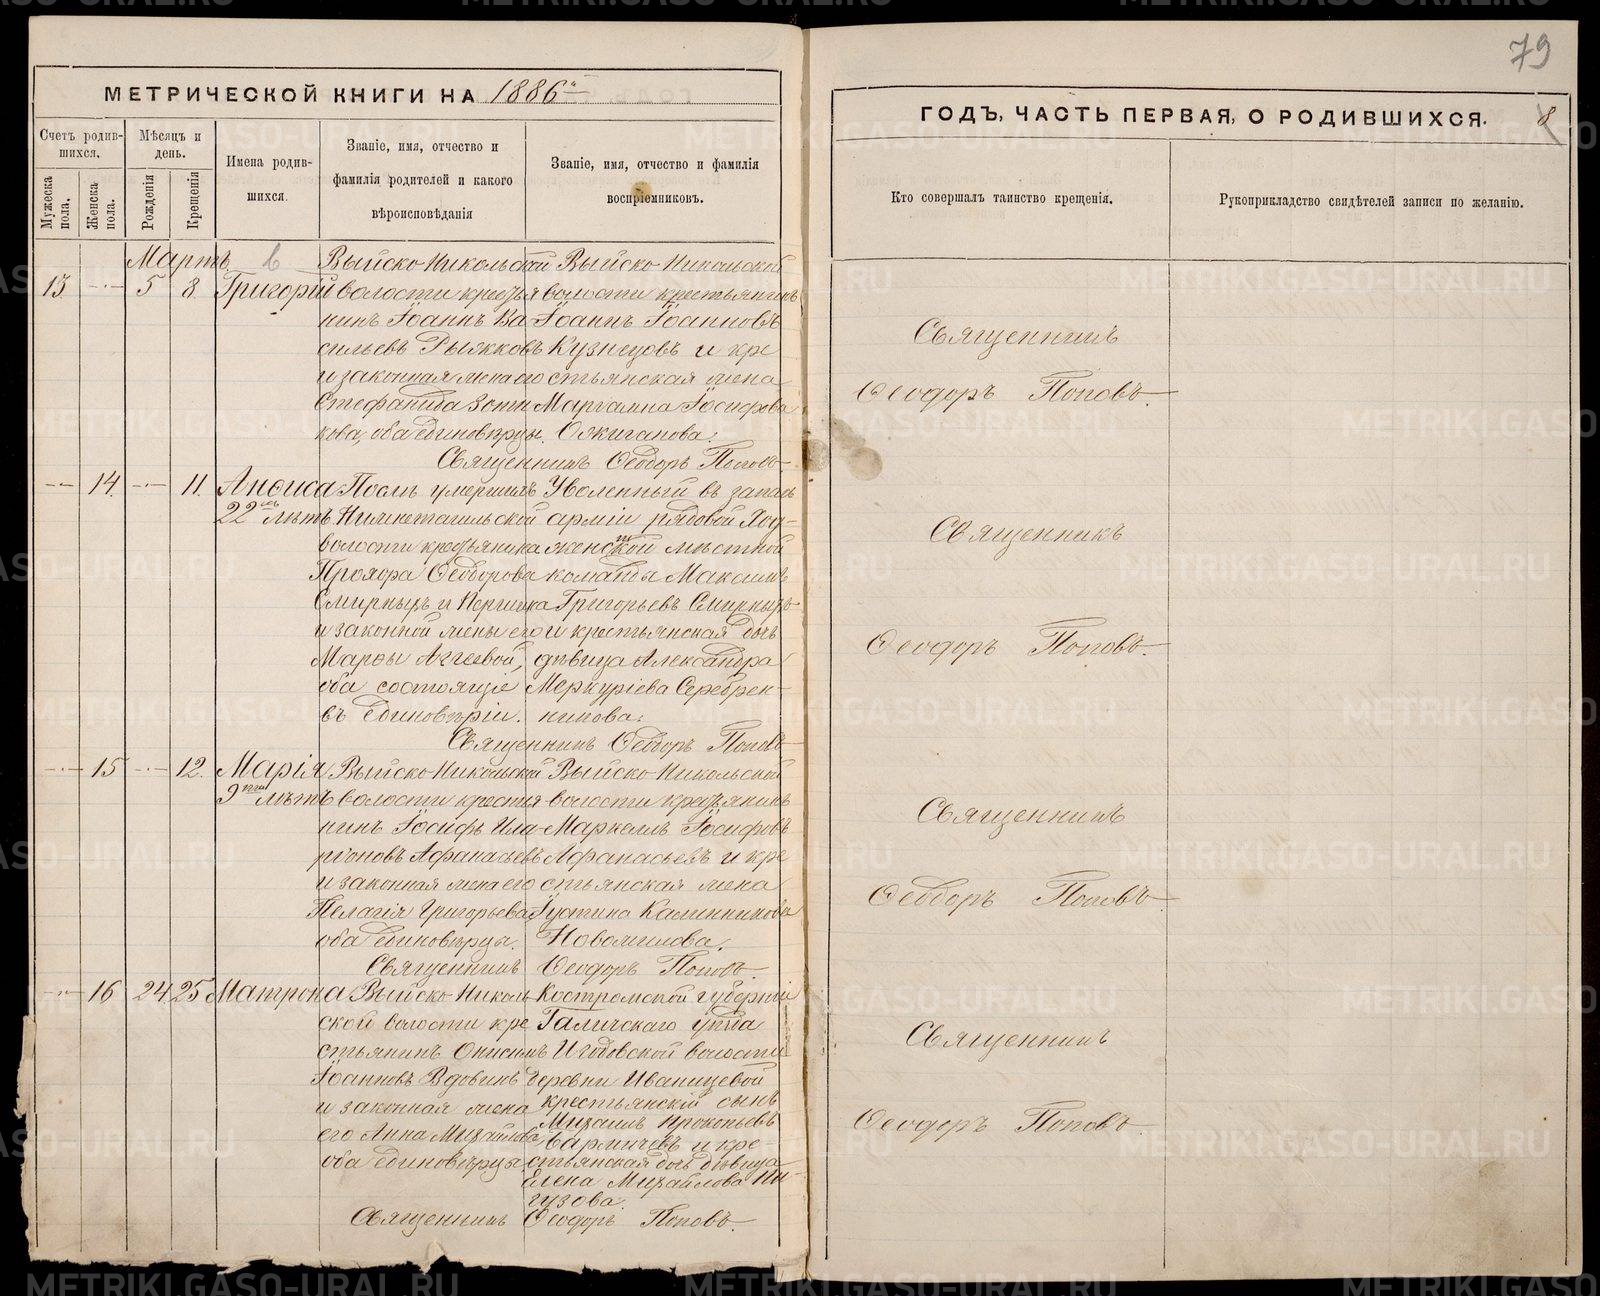 79
МЕТРИЧЕСКОЙ КНИГИ НА 1886й
ГОДЪ, ЧАСТЬ ПЕРВАЯ, О РОДИВШИХСЯ.
8
Счетъ родившихся.
Мужеска пола.
Женска пола.
Мѣсяцъ и день.
Рожденія
Крещенія
Имена родившихся.
Званіе, имя, отчество и
фамилія родителей и какого
вѣроисповѣданія
Званіе, имя, отчество и фамилія
воспріемниковъ.
Кто совершалъ таинство крещенія.
Рукоприкладство свидѣтелей записи по желанію.
Мартъ
13 5 8 Григорій
Выйско-Никольской
волости крестья
нинъ Іоаннъ Ва
сильевъ Рыжковъ
и законная жена его
Стефанида Зоти
кова, оба единовѣрцы.
Выйско-Никольской
волости крестьянинъ
Іоаннъ Іоанновъ
Кузнецовъ и кре
стьянская жена
Маріамна Іосифова
Ожиганова.
Священникъ Ѳеодоръ Поповъ
Священникъ
Ѳеодоръ Поповъ.
14. 11. Анѳиса
22 лѣтъ
Послѣ умершихъ
Нижнетагильской
волости крестьянина
Прохора Ѳеодорова
Смирныхъ и
и законной жены его
Марѳы Аггеевой,
оба состоящіе
въ единовѣріи.
Уволенный въ запасъ
арміи рядовой
мѣстной
команды Максимъ
Григорьевъ Смирныхъ
и крестьянская дочь
дѣвица Александра
Меркуріева Серебрен-
никова.
Священникъ Ѳеодоръ Поповъ
Священникъ
Ѳеодоръ Поповъ.
15 12. Марія
9 лѣтъ
Выйско-Никольской
волости крестья
нинъ Іосифъ Ила
ріоновъ Афанасьевъ
и законная жена его
Пелагія Григорьева
оба единовѣрцы.
Выйско-Никольской
волости крестьянинъ
Маркеллъ Іосифовъ
Афанасьевъ и кре
стьянская жена
Іустина Калинникова
Новожилова.
Священникъ Ѳеодоръ Поповъ.
Священникъ
Ѳеодоръ Поповъ
16 24 25 Матрона
Выйско-Николь
ской волости кре
стьянинъ Онисимъ
Іоанновъ Вдовинъ
и законная жена
его Анна Михайлова
оба единовѣрцы.
Костромской губерніи
Галичскаго уѣзда
Игодовской волости
деревни Иванцевой
крестьянскій сынъ
Михаилъ Прокопьевъ
и кре-
стьянская дочь дѣвица
Елена Михайлова Пи-
гузова.
Священникъ Ѳеодоръ Поповъ.
Священникъ
Ѳеодоръ Поповъ.
METRIKI.GASO-URAL.RU